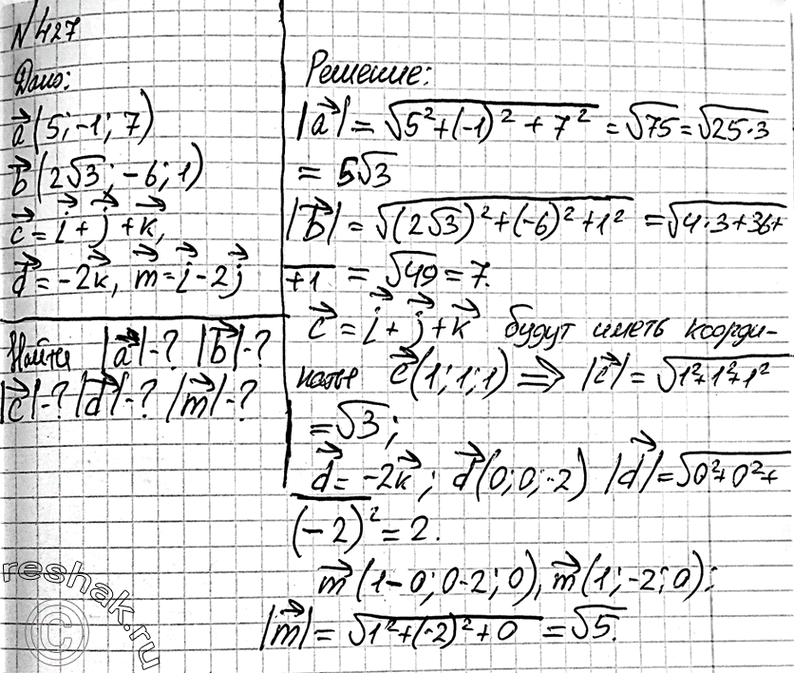 №427
Дано:
a⃗(5; -1; 7)
b⃗(2√3; -6; 1)
c⃗ = i⃗ + j⃗ + k⃗,
d⃗ = -2k⃗, m⃗ = i⃗ - 2j⃗
Найти |a⃗|-? |b⃗|-?
|c⃗|-? |d⃗|-? |m⃗|-?
Решение:
|a⃗| = √(5² + (-1)² + 7²) = √75 = √(25·3)
= 5√3
|b⃗| = √((2√3)² + (-6)² + 1²) = √(4·3+36+
+1) = √49 = 7.
c⃗ = i⃗ + j⃗ + k⃗ будут иметь коорди-
наты c⃗(1; 1; 1) ⇒ |c⃗| = √(1²+1²+1²)
= √3;
d⃗ = -2k⃗; d⃗(0; 0; -2) |d⃗| = √(0²+0²+
(-2)²) = 2.
m⃗(1-0; 0-2; 0), m⃗(1; -2; 0);
|m⃗| = √(1²+(-2)²+0) = √5.
reshak.ru
©